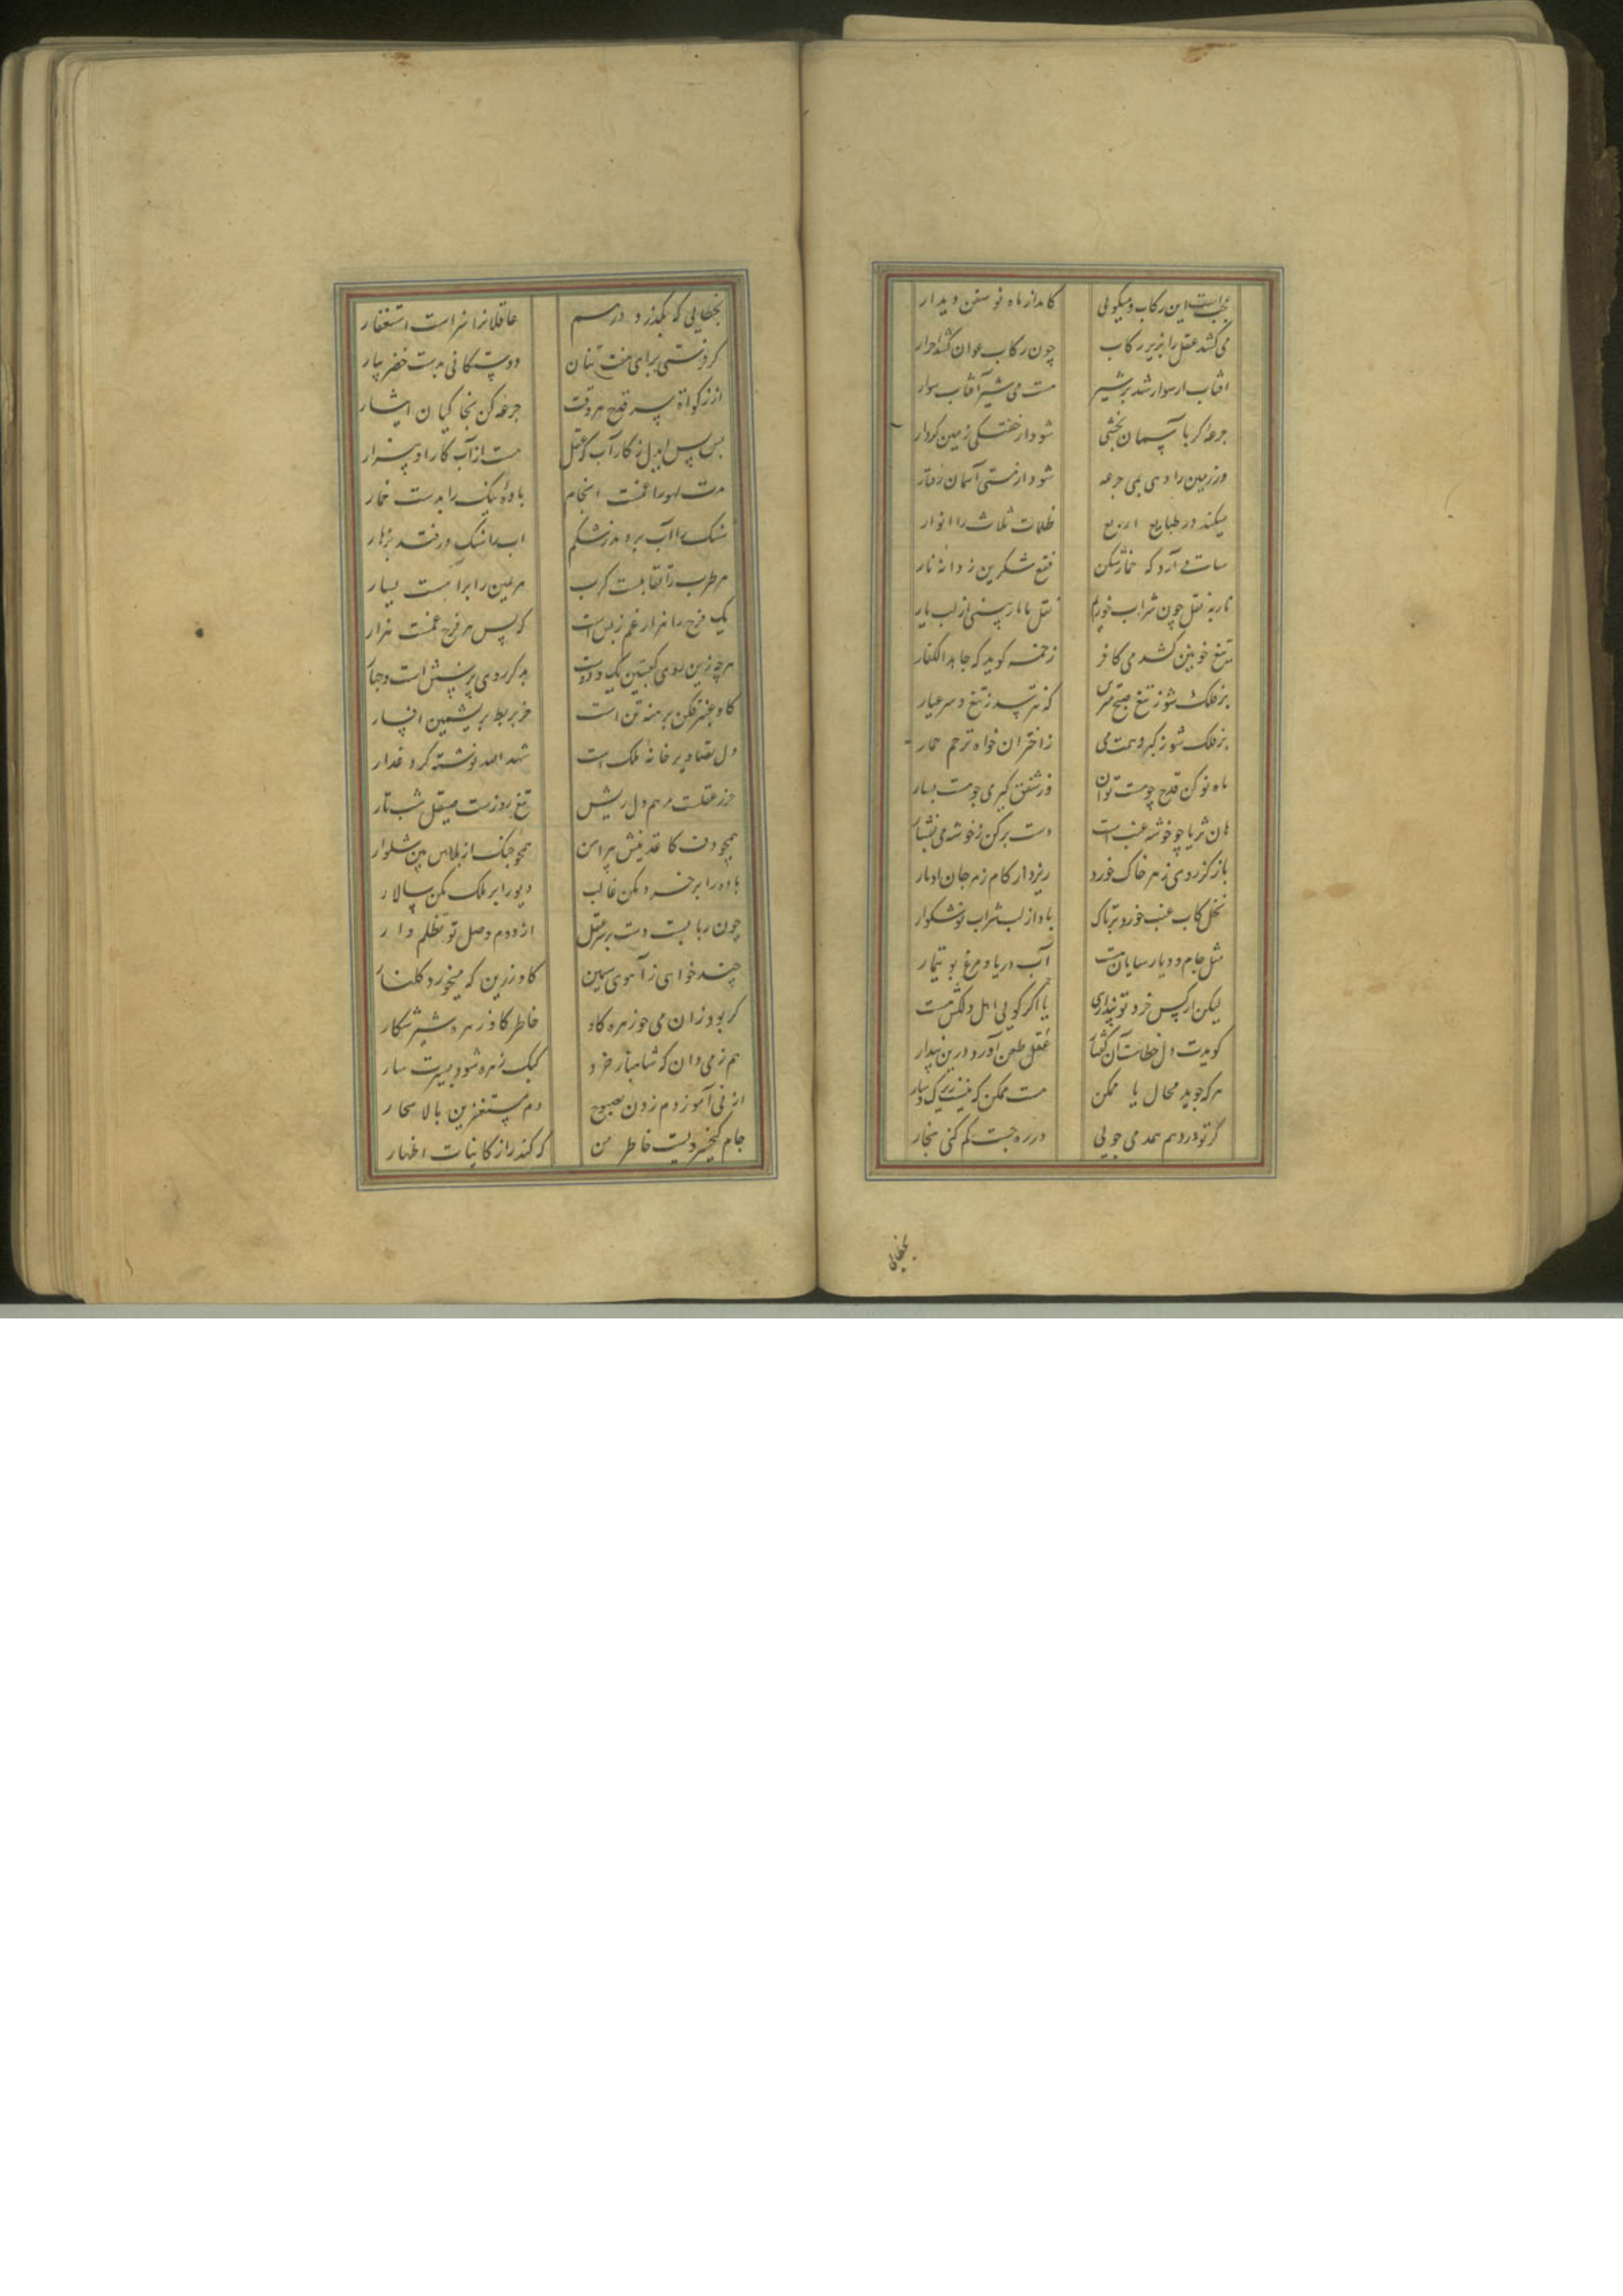 عجب است این رکاب و میکویی کامداز ماه نو شفق دیدار
می کشد عقل را بزیر رکاب چون رکاب عوان کشد احرار
افتاب ارسوار شد بر شیر هست می شیر آفتاب سوار
جرعه کر با آسمان بخشی شود از خفتکی زمین کردار
ور زمین را دهی یمی جرعه شود از مستی آسمان رفتار
میکند در طبایع اربع ظلمات ثلاث را انوار
خمارشکن فقع شکرین ز دانه نار
تا به نقل چون شراب خوریم نقل ما نار بینی از لب یار
تیغ خونین کشد می کافر زخمه کوید که جاهد الکفار
بر فلک شو ز تیغ صبح مترس که نترسد ز تیغ و سر عیار
بر فلک شو ز اختران خواه ترحم خمار
ماه نو کن قدح چو هست توان ور شفق کیری چو هست بیار
هان ثریا چو خوشه عنب است دست بر کن ز خوشه می بفشار
باز کز روی زهر خاک خورد ریزد از کام زهر جان اوبار
نخل کاب عنب خورد بر تاک باد از لب شراب نوشکوار
مثل جام و دیار سایان هست آب دریا و مرغ بوتیمار
لیکن ار کس خرد تو پنداری یا اکر کویی اهل دلکش هست
کویدت دل خطاست آن کفتار عقل طعن آورد درین پندار
هر که جوید محال یا ممکن هست ممکن که نیست زیرک سار
کر تو در وهم همدمی جویی در ره جست کم کنی هنجار
بخطایی
بخطایی که بکذرد در وسم عاقلانرا سزاست استغفار
کروفستی برای هفت تنان دوستکانی بدست خضر بیار
از زکوة سر قدح هر وقت جرعه کن بخاکیان ایثار
بس بس ایدل ز کار آب که عقل هست از آب کار او بیزار
مدت لهو را غمست انجام باده نیک را بدست خمار
سنک را آب بردمد ز شکم اب را سنک درفتد بزهار
هر طرب را مقابلست کرب هر یمین را برابر است یسار
یک فرح را هزار غم ز پس است که پس هر فرح غمست هزار
هر چه زین روی کعبتین یک و دوست بر دکر روی پنج و شش است و چهار
کاو عنبر فکن برهنه تن است خر بربط بریشمین افسار
دل تصاویر خانه ملک است شهد الله نوشته کرد عذار
حرز عقلست مرهم دل ریش تیغ روزست صیقل شب تار
همچو دف کاغذینش پیراهن همچو چنک از پلاس بین شلوار
باده را بر خرد مکن غالب دیو را بر ملک مکن سالار
چون رباب است دست بر سر عقل از دوم وصل تو تظلم دار
چند خواهی ز آهوی سیمین کاو زرین که میخورد کلنار
کر بود زان می چو زهره کاو خاطر کاو زهره شیر شکار
هم ز می دان که شاهباز خرد کبک زهره شود بسیرت سار
از نی آموز دم زدن بصبوح دم مستغفرین بالاسحار
جام کیخسرویست خاطر من که کند راز کاینات اظهار